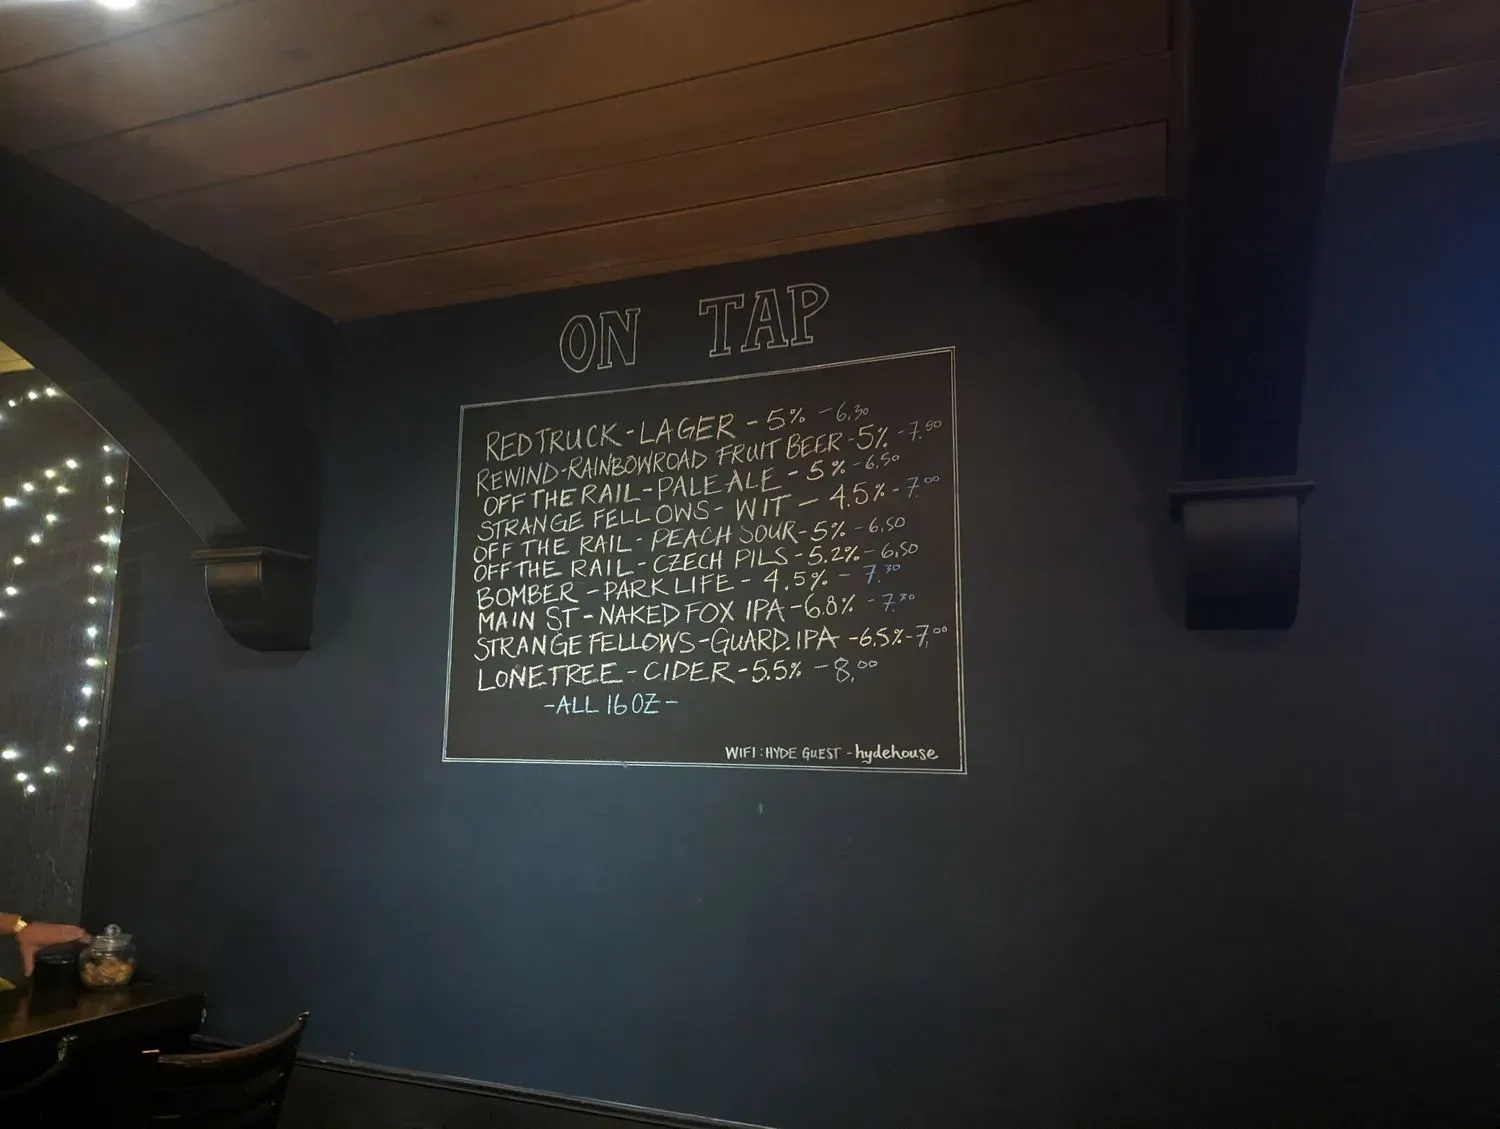 ON TAP
RED TRUCK - LAGER - 5% - 6.30
REWIND - RAINBOWROAD FRUIT BEER - 5% - 7.50
OFF THE RAIL - PALE ALE - 5% - 6.50
STRANGE FELLOWS - WIT - 4.5% - 7.00
OFF THE RAIL - PEACH SOUR - 5% - 6.50
OFF THE RAIL - CZECH PILS - 5.2% - 6.50
BOMBER - PARK LIFE - 4.5% - 7.30
MAIN ST - NAKED FOX IPA - 6.8% - 7.30
STRANGE FELLOWS - GUARD. IPA - 6.5% - 7.00
LONETREE - CIDER - 5.5% - 8.00
- ALL 16 OZ -
WIFI : HYDE GUEST - hydehouse